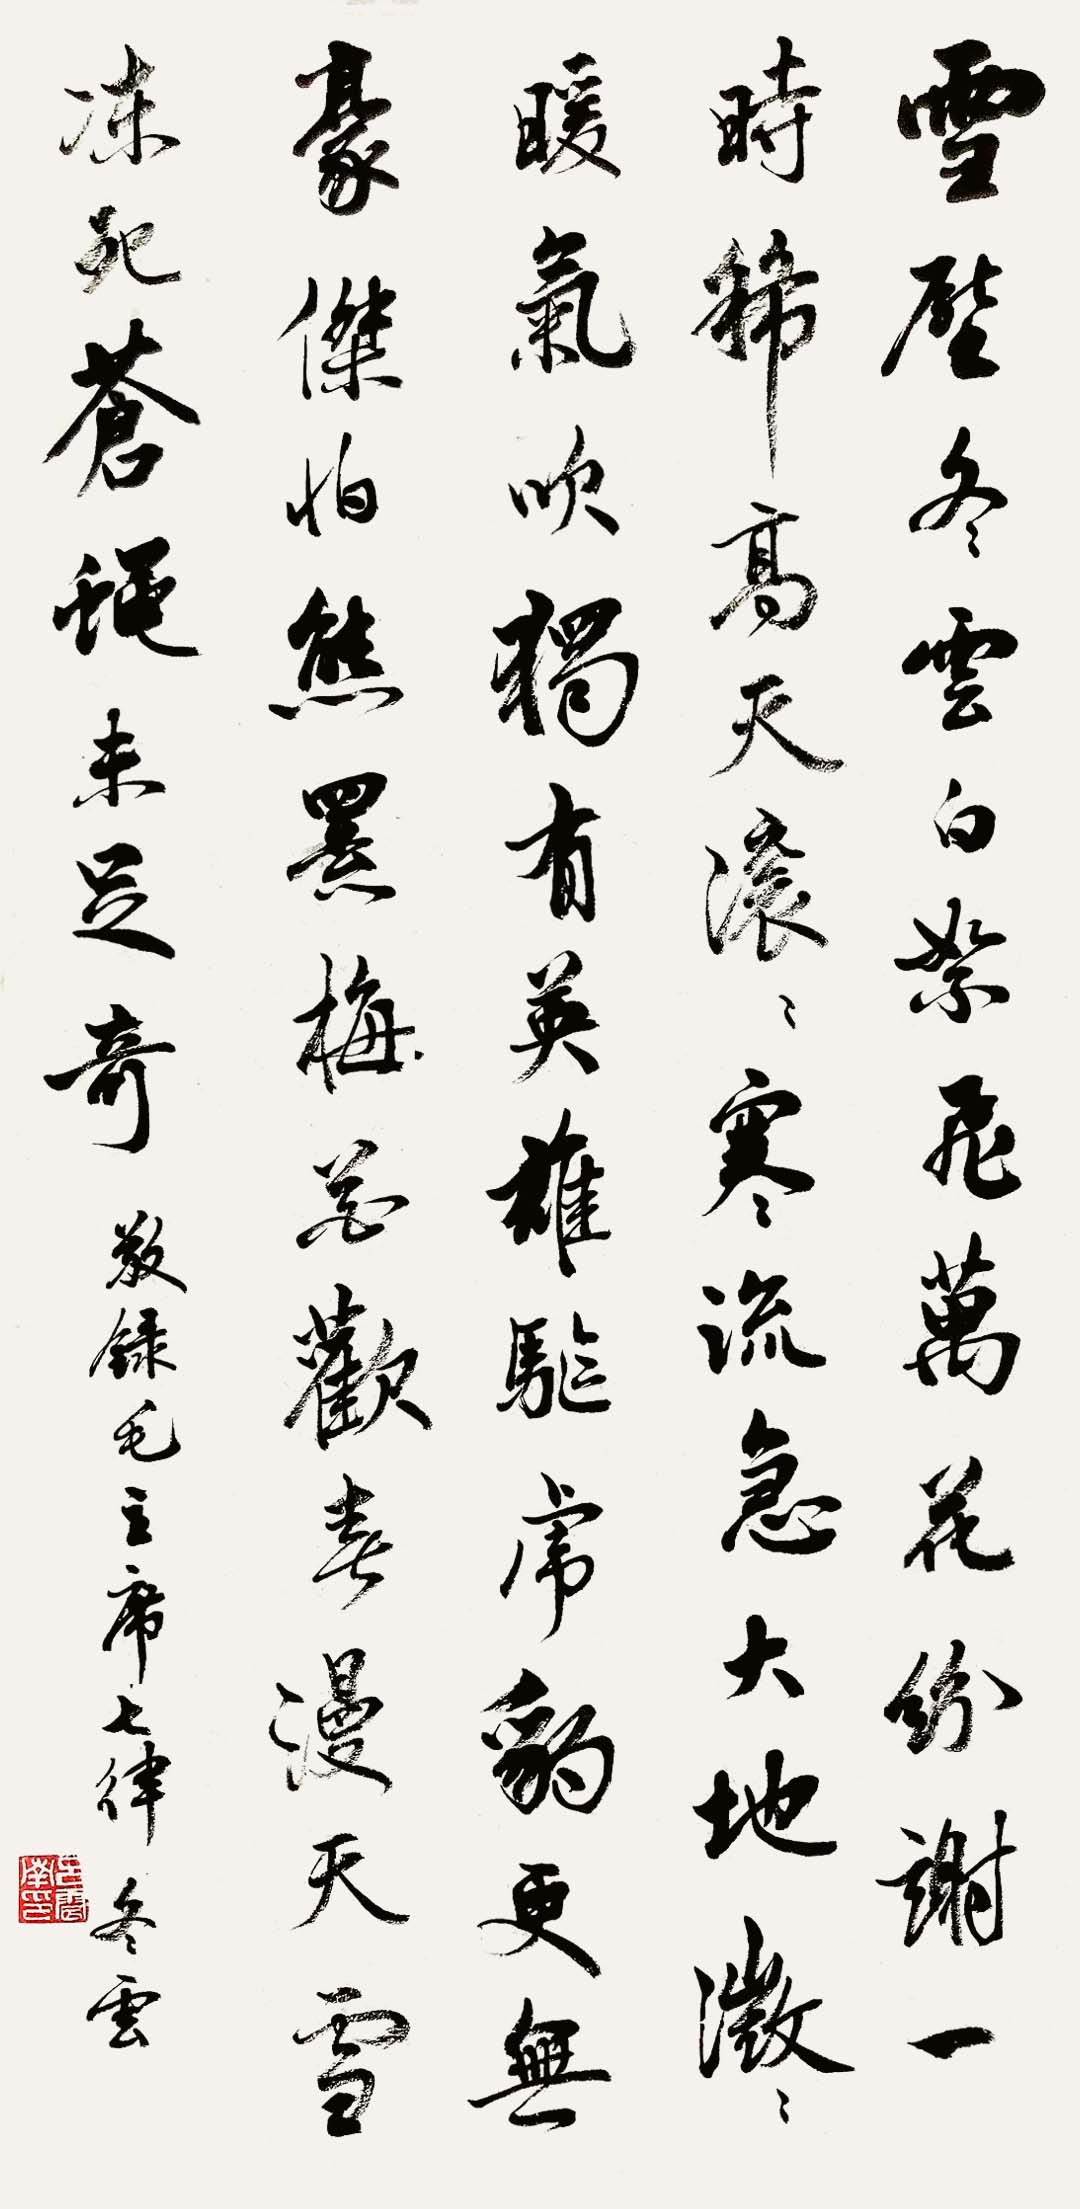 雪壓冬雲白絮飛萬花紛謝一
時稀高天滾〻寒流急大地微〻
暖氣吹獨有英雄驅虎豹更無
豪傑怕熊羆梅花歡喜漫天雪
凍死蒼蠅未足奇 敬録毛主席七律 冬雲